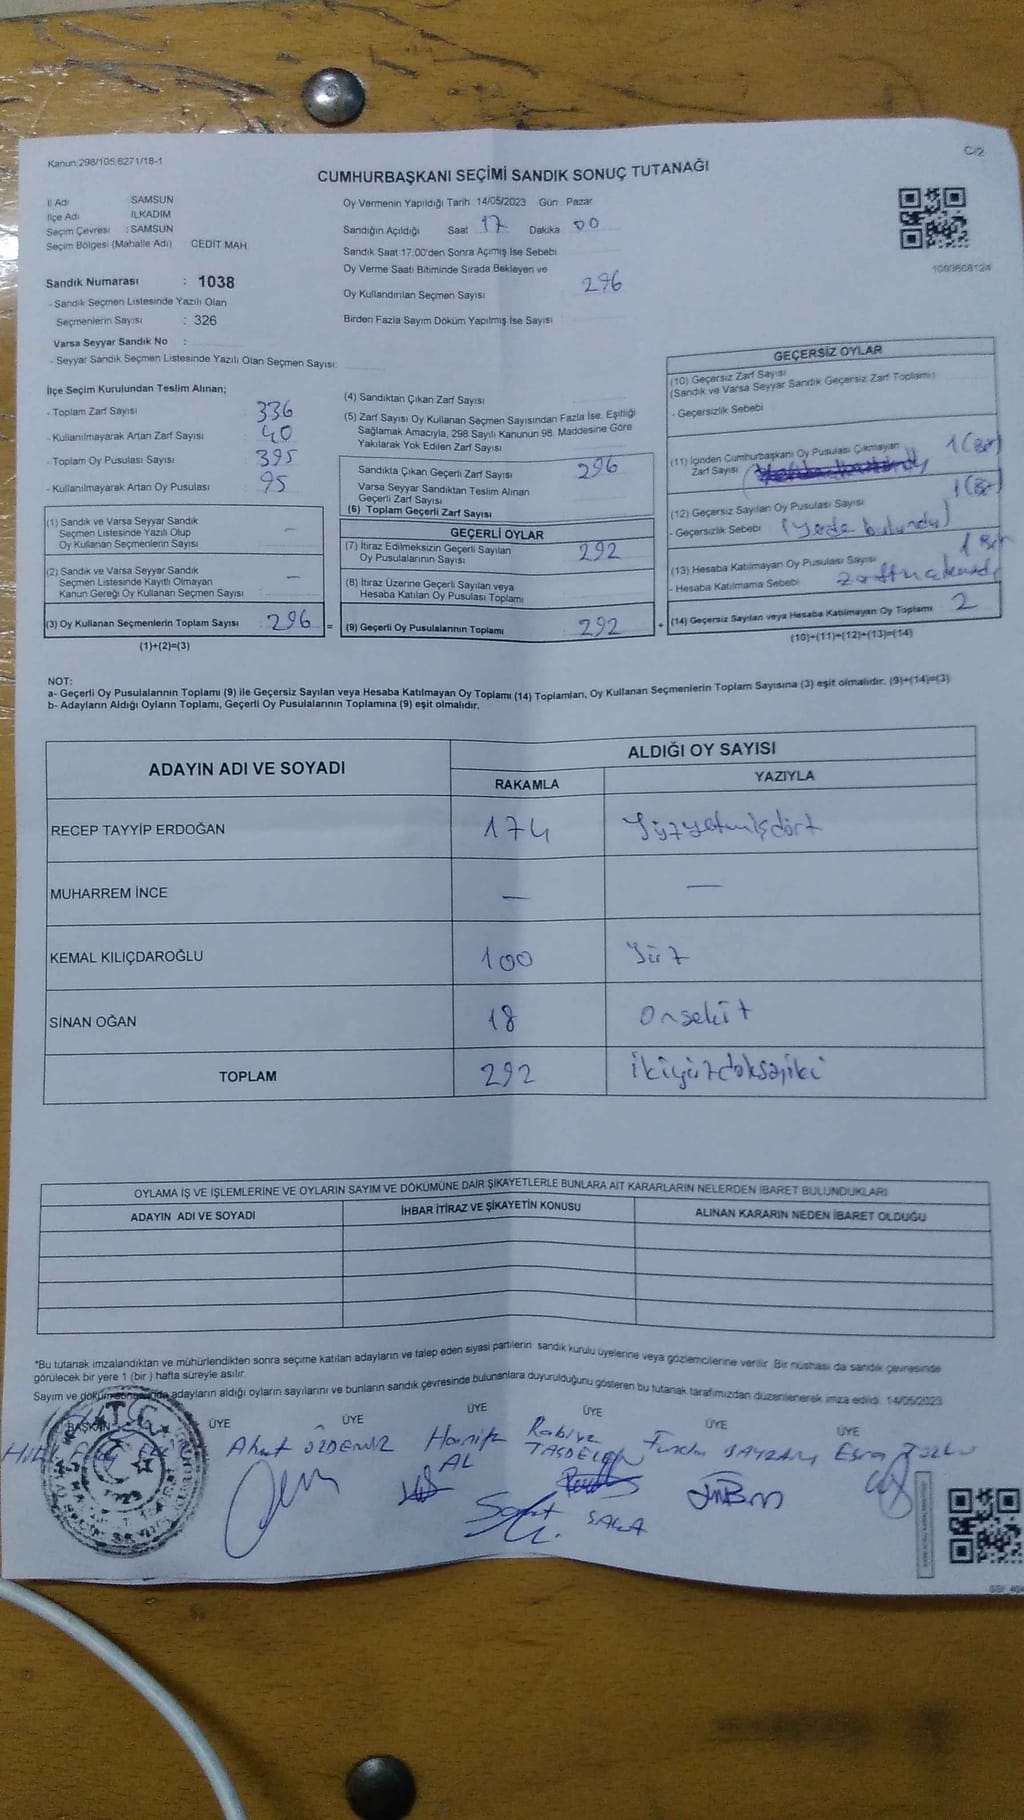 Kanun 298/105,6271/18-1
C/2
CUMHURBAŞKANI SEÇİMİ SANDIK SONUÇ TUTANAĞI
İl Adı SAMSUN
İlçe Adı İLKADIM
Seçim Çevresi : SAMSUN
Seçim Bölgesi (Mahalle Adı) CEDİT MAH.
Oy Vermenin Yapıldığı Tarih 14/05/2023 Gün Pazar
Sandığın Açıldığı Saat 17 Dakika 00
Sandık Saat 17:00'den Sonra Açımış İse Sebebi
Oy Verme Saati Bitiminde Sırada Bekleyen ve
Oy Kullandırılan Seçmen Sayısı 296
Birden Fazla Sayım Döküm Yapılmış İse Sayısı
1093608124
Sandık Numarası : 1038
- Sandık Seçmen Listesinde Yazılı Olan
Seçmenlerin Sayısı : 326
Varsa Seyyar Sandık No :
- Seyyar Sandık Seçmen Listesinde Yazılı Olan Seçmen Sayısı:
İlçe Seçim Kurulundan Teslim Alınan;
- Toplam Zarf Sayısı : 336
- Kullanılmayarak Artan Zarf Sayısı : 40
- Toplam Oy Pusulası Sayısı : 395
- Kullanılmayarak Artan Oy Pusulası : 95
(1) Sandık ve Varsa Seyyar Sandık
Seçmen Listesinde Yazılı Olup
Oy Kullanan Seçmenlerin Sayısı —
(2) Sandık ve Varsa Seyyar Sandık
Seçmen Listesinde Kayıtlı Olmayan
Kanun Gereği Oy Kullanan Seçmen Sayısı —
(3) Oy Kullanan Seçmenlerin Toplam Sayısı 296 =
(1)+(2)=(3)
(4) Sandıktan Çıkan Zarf Sayısı
(5) Zarf Sayısı Oy Kullanan Seçmen Sayısından Fazla İse, Eşitliği
Sağlamak Amacıyla, 298 Sayılı Kanunun 98. Maddesine Göre
Yakılarak Yok Edilen Zarf Sayısı
Sandıkta Çıkan Geçerli Zarf Sayısı 296
Varsa Seyyar Sandıktan Teslim Alınan
Geçerli Zarf Sayısı
(6) Toplam Geçerli Zarf Sayısı
GEÇERLİ OYLAR
(7) İtiraz Edilmeksizin Geçerli Sayılan
Oy Pusulalarının Sayısı 292
(8) İtiraz Üzerine Geçerli Sayılan veya
Hesaba Katılan Oy Pusulası Toplamı
(9) Geçerli Oy Pusulalarının Toplamı 292 +
GEÇERSİZ OYLAR
(10) Geçersiz Zarf Sayısı
(Sandık ve Varsa Seyyar Sandık Geçersiz Zarf Toplamı)
- Geçersizlik Sebebi
(11) İçinden Cumhurbaşkanı Oy Pusulası Çıkmayan
Zarf Sayısı 1 (Bir)
(12) Geçersiz Sayılan Oy Pusulası Sayısı 1 (Bir)
- Geçersizlik Sebebi (Yerde bulundu)
(13) Hesaba Katılmayan Oy Pusulası Sayısı 1 Bir
- Hesaba Katılmama Sebebi
(14) Geçersiz Sayılan veya Hesaba Katılmayan Oy Toplamı 2
(10)+(11)+(12)+(13)=(14)
NOT:
a- Geçerli Oy Pusulalarının Toplamı (9) ile Geçersiz Sayılan veya Hesaba Katılmayan Oy Toplamı (14) Toplamları, Oy Kullanan Seçmenlerin Toplam Sayısına (3) eşit olmalıdır. (9)+(14)=(3)
b- Adayların Aldığı Oyların Toplamı, Geçerli Oy Pusulalarının Toplamına (9) eşit olmalıdır.
ADAYIN ADI VE SOYADI
ALDIĞI OY SAYISI
RAKAMLA YAZIYLA
RECEP TAYYİP ERDOĞAN 174 Yüzyetmişdört
MUHARREM İNCE — —
KEMAL KILIÇDAROĞLU 100 Yüz
SİNAN OĞAN 18 Onsekiz
TOPLAM 292 ikiyüzdoksaniki
OYLAMA İŞ VE İŞLEMLERİNE VE OYLARIN SAYIM VE DÖKÜMÜNE DAİR ŞİKAYETLERLE BUNLARA AİT KARARLARIN NELERDEN İBARET BULUNDUKLARI
ADAYIN ADI VE SOYADI İHBAR İTİRAZ VE ŞİKAYETİN KONUSU ALINAN KARARIN NEDEN İBARET OLDUĞU
*Bu tutanak imzalandıktan ve mühürlendikten sonra seçime katılan adayların ve talep eden siyasi partilerin sandık kurulu üyelerine veya gözlemcilerine verilir. Bir nüshası da sandık çevresinde
görülecek bir yere 1 (bir) hafta süreyle asılır.
Sayım ve dökümü adayların aldığı oyların sayılarını ve bunların sandık çevresinde bulunanlara duyurulduğunu gösteren bu tutanak tarafımızdan düzenlenerek imza edildi. 14/05/2023
BAŞKAN ÜYE ÜYE ÜYE ÜYE ÜYE ÜYE
Ahmet ÖZDEMİR Hanife AL Rabiya TAŞDELEN Funda BAYRAM Esra
T.C.